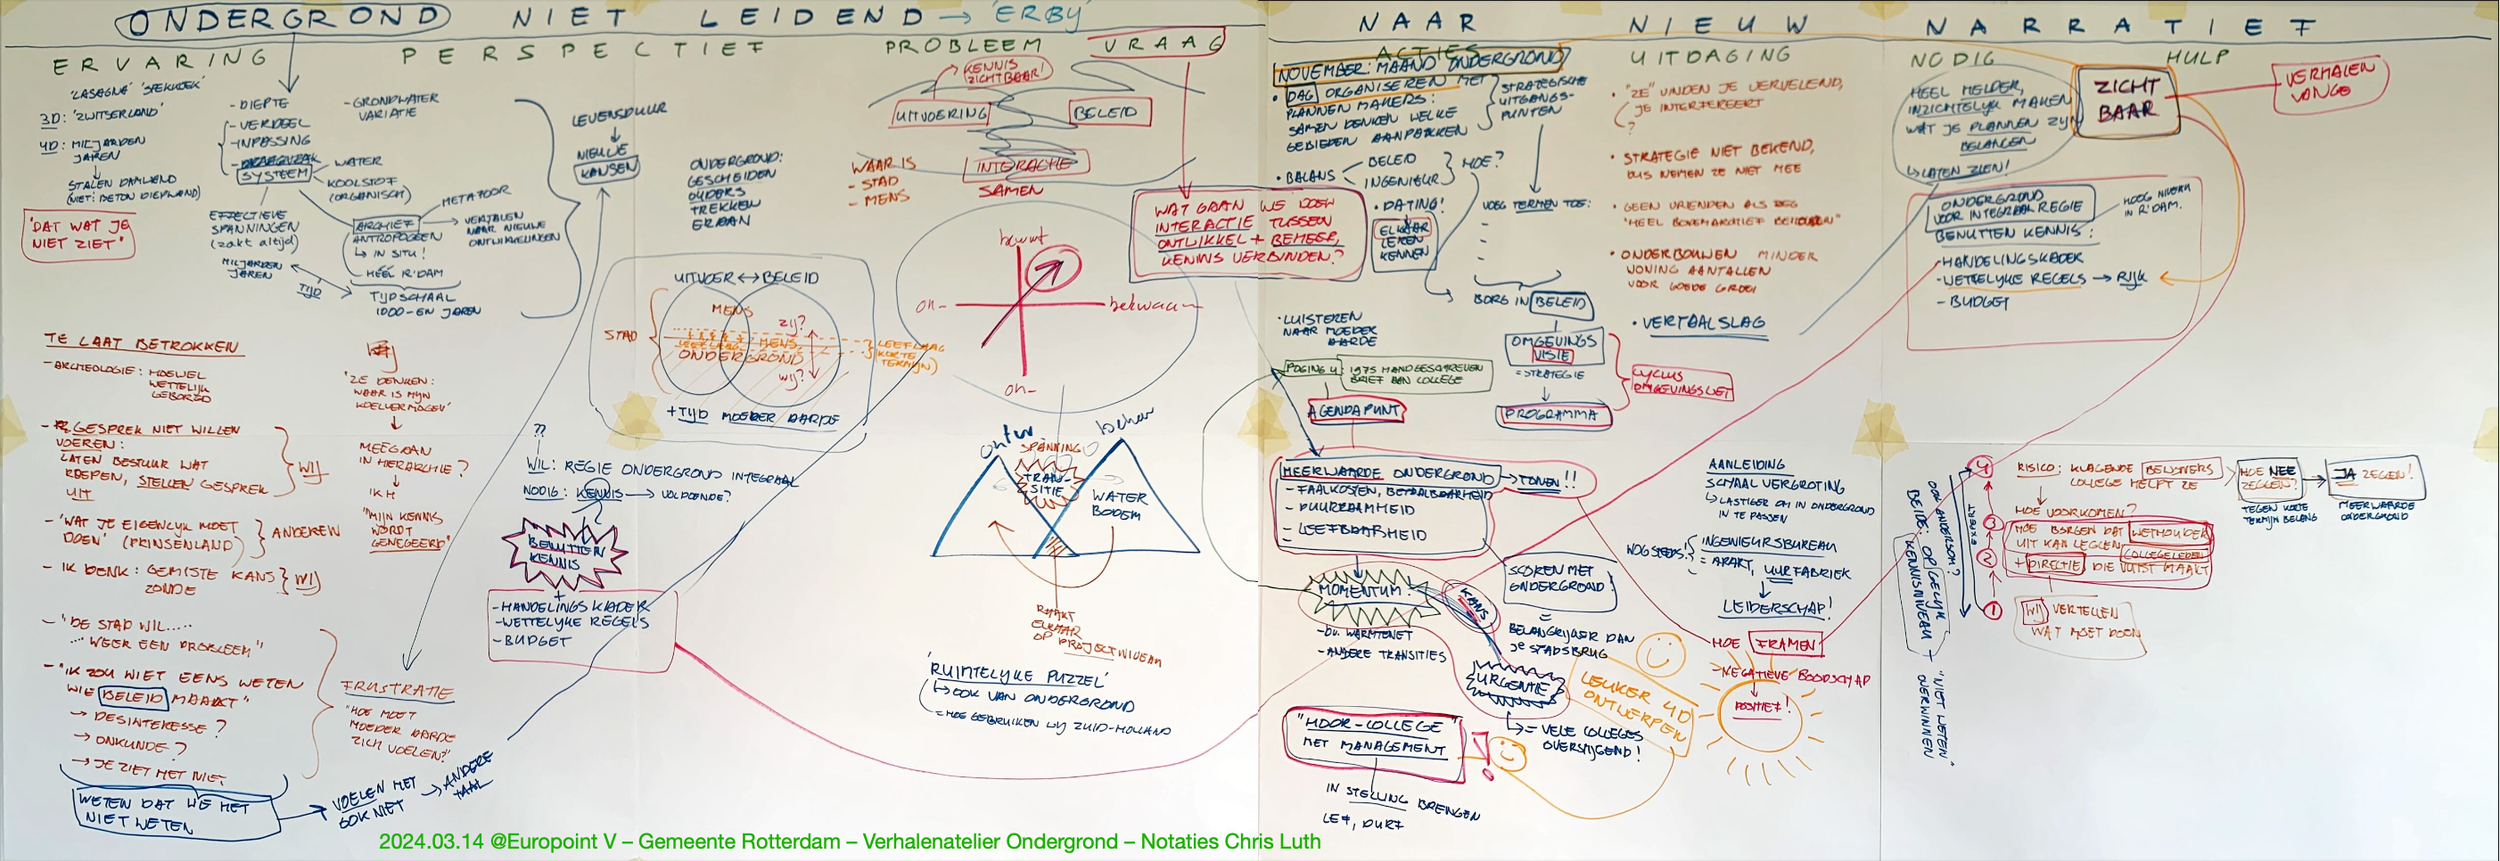 ONDERGROND NIET LEIDEND → 'ERBY'
NAAR NIEUW NARRATIEF
ERVARING
PERSPECTIEF
PROBLEEM
VRAAG
ACTIES
UITDAGING
NODIG
HULP
'LASAGNA' 'SPEKKOEK'
3D: 'ZWITSERLAND'
4D: MILJARDEN
JAREN
STALEN DAMWAND
(NIET: BETON DIEPWAND)
'DAT WAT JE
NIET ZIET'
- DIEPTE
- VERDEEL
- INPASSING
SYSTEEM
- GRONDWATER
VARIATIE
WATER
KOOLSTOF
(ORGANISCH)
EFFECTIEVE
SPANNINGEN
(zakt altijd)
MILJARDEN
JAREN
TIJD
METAFOOR
ARCHIEF
ANTROPOGEEN
↳ IN SITU!
- HÉÉL R'DAM
VERTALEN
NAAR NIEUWE
ONTWIKKELINGEN
TIJDSCHAAL
1000-EN JAREN
LEVENSDUUR
NIEUWE
KANSEN
ONDERGROND:
GESCHEIDEN
OUDERS
TREKKEN
ERAAN
WAAR IS
- STAD
- MENS
KENNIS
ZICHTBAAR!
UITVOERING
BELEID
INTERACTIE
SAMEN
WAT GAAN WE DOEN
INTERACTIE TUSSEN
ONTWIKKEL + BEHEER,
KENNIS VERBINDEN?
UITVOER ↔ BELEID
STAD
MENS
zij?
MENS
ONDERGROND
wij?
LEEFLAAG
KORTE
TERMIJN)
+ TIJD MOEDER AARDE
bewust
on-
bekwaam
on-
TE LAAT BETROKKEN
- ARCHEOLOGIE: HOEWEL
WETTELIJK
GEBORGD
- GESPREK NIET WILLEN
VOEREN:
LATEN BESTUUR WAT
ROEPEN, STELLEN GESPREK
UIT
WIJ
- 'WAT JE EIGENLIJK MOET
DOEN' (PRINSENLAND)
ANDEREN
- IK DENK: GEMISTE KANS
ZONDE
WIJ
- "DE STAD WIL.....
.... WEER EEN PROBLEEM"
- "IK ZOU NIET EENS WETEN
WIE BELEID MAAKT"
→ DESINTERESSE?
→ ONKUNDE?
→ JE ZIET HET NIET
WETEN DAT WE HET
NIET WETEN
VOELEN HET
OOK NIET
→ ANDERE
TAAL
"ZE DENKEN:
WAAR IS MIJN
KOELVERMOGEN"
MEEGAAN
IN HIERARCHIE?
"MIJN KENNIS
WORDT
GENEGEERD"
FRUSTRATIE
"HOE MOET
MOEDER AARDE
ZICH VOELEN?"
??
WIL: REGIE ONDERGROND INTEGRAAL
NODIG: KENNIS → VOLDOENDE?
BENUTTEN
KENNIS
+
- HANDELINGSKADER
- WETTELIJKE REGELS
- BUDGET
ontw
beheer
SPANNING
TRAN-
SITIE
WATER
BODEM
RAAKT
ELKAAR
OP PROJECTNIVEAU
'RUIMTELIJKE PUZZEL'
↳ OOK VAN ONDERGROND
= HOE GEBRUIKEN WIJ ZUID-HOLLAND
NOVEMBER: MAAND ONDERGROND
• DAG ORGANISEREN MET
PLANNEN MAKERS:
SAMEN DENKEN WELKE
GEBIEDEN AANPAKKEN
STRATEGISCHE
UITGANGS-
PUNTEN
• BALANS
BELEID
INGENIEUR
HOE?
• DATING!
ELKAAR
LEREN
KENNEN
VOEG TERMEN TOE:
BORG IN BELEID
OMGEVINGS
VISIE
= STRATEGIE
PROGRAMMA
CYCLUS
OMGEVINGSWET
• LUISTEREN
NAAR MOEDER
AARDE
POGING 4: 1975 HANDGESCHREVEN
BRIEF AAN COLLEGE
AGENDAPUNT
MEERWAARDE ONDERGROND → TONEN!!
- FAALKOSTEN, BETAALBAARHEID
- DUURZAAMHEID
- LEEFBAARHEID
MOMENTUM!
- bv. WARMTENET
- ANDERE TRANSITIES
KANS
SCOREN MET
ONDERGROND!
=
BELANGRIJKER DAN
JE STADSBRUG
URGENTIE
↳ = VELE COLLEGES
OVERSTIJGEND!
"HOOR-COLLEGE"
MET MANAGEMENT
IN STELLING BRENGEN
LEF, DURF
LEUKER 4D
ONTWERPEN
• "ZE" VINDEN JE VERVELEND,
JE INTERFEREERT
?
• STRATEGIE NIET BEKEND,
DUS NEMEN ZE NIET MEE
• GEEN VRIENDEN ALS
• ONDERBOUWEN MINDER
WONING AANTALLEN
VOOR GOEDE GROEI
• VERTAALSLAG
AANLEIDING
SCHAALVERGROTING
↳ LASTIGER OM IN ONDERGROND
IN TE PASSEN
NOG STEEDS!
INGENIEURSBUREAU
= APART, UURFABRIEK
LEIDERSCHAP!
HOE FRAMEN
- NEGATIEVE BOODSCHAP
POSITIEF!
HEEL HELDER,
INZICHTELIJK MAKEN
WAT JE PLANNEN ZIJN
BELANGEN
↳ LATEN ZIEN!
ZICHT
BAAR
VERHALEN
VANGE
ONDERGROND
VOOR INTEGRAAL REGIE
HOOG NIVEAU
IN R'DAM.
BENUTTEN KENNIS:
- HANDELINGSKADER
- WETTELIJKE REGELS → RIJK
- BUDGET
4
3
2
1
EXPERT
OOK ANDERSOM?
BEIDE: OP GELIJK
KENNISNIVEAU + "NIET WETEN"
OVERWINNEN
RISICO: KLAGENDE BEWONERS
COLLEGE HELPT ZE
HOE NEE
ZEGGEN?
JA ZEGGEN!
TEGEN KORTE
TERMIJN BELANG
MEERWAARDE
ONDERGROND
HOE VOORKOMEN?
HOE BORGEN DAT WETHOUDER
UIT KAN LEGGEN COLLEGELEDEN
+ DIRECTIE DIE VUIST MAAKT
WIJ VERTELLEN
WAT MOET DOEN
2024.03.14 @Europoint V – Gemeente Rotterdam – Verhalenatelier Ondergrond – Notaties Chris Luth